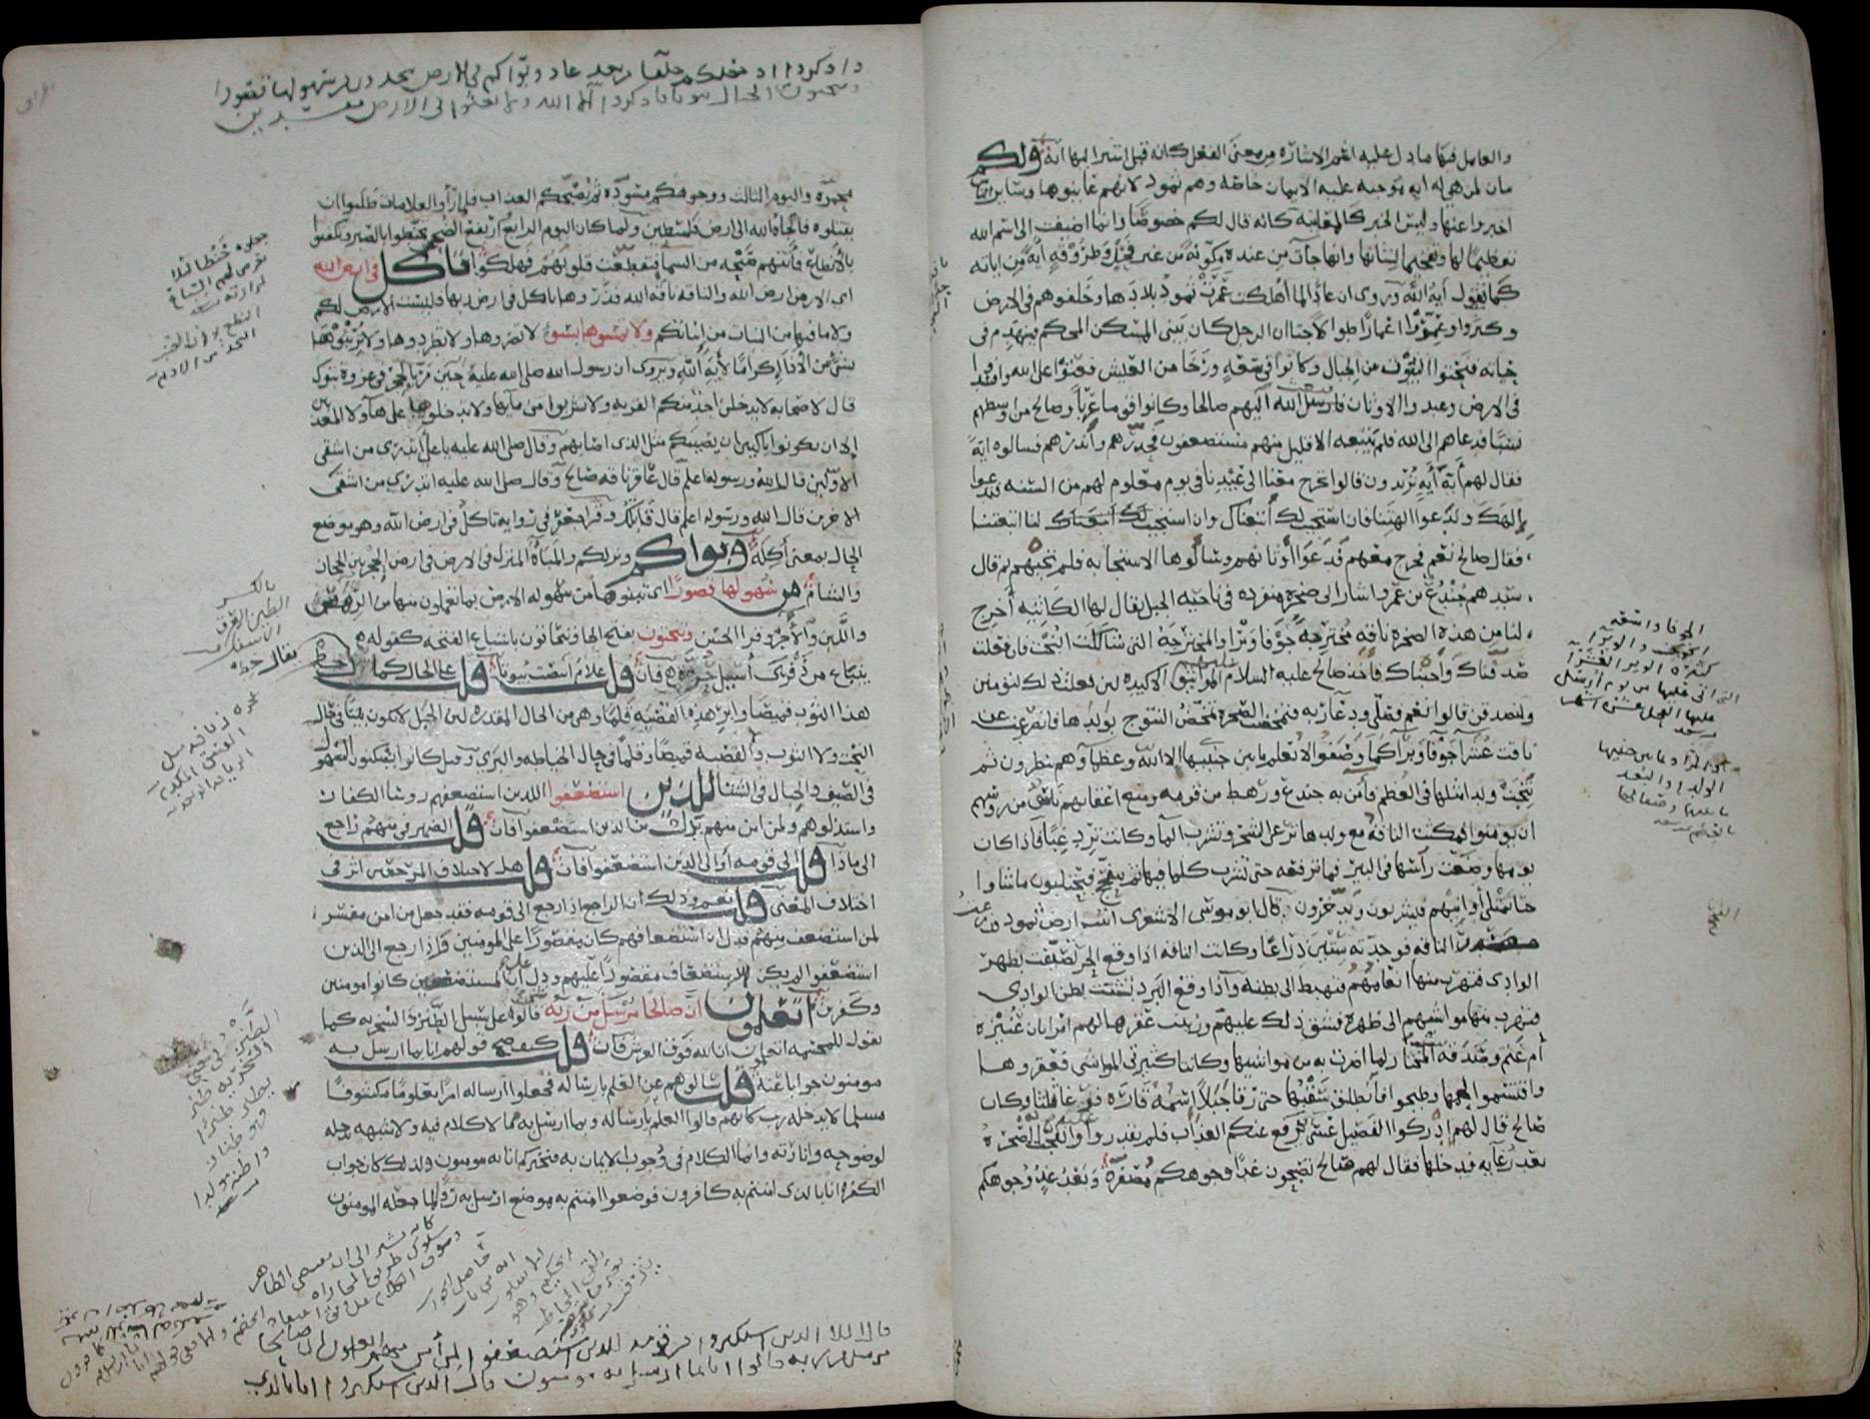 والعامل فيها ما دل عليه اسم الاشارة من معنى الفعل كانه قيل اشير اليها اية ولكم
بيان لمن هي له اية موجبة عليه الايمان خاصة وهم ثمود لانهم عاينوها وسائر الناس
اخبروا عنها وليس الخبر كالمعاينة كانه قال لكم خصوصا وانما اضيفت الى اسم الله
تعظيما لها وتفخيما لشانها وانها جاءت من عنده مكونة من غير فحل وطروقة اية من اياته
كما تقول اية الله وروي ان عادا لما اهلكت عمرت ثمود بلادها وخلفوهم في الارض
وكثروا وعمروا اعمارا طوالا حتى ان الرجل كان يبني المسكن المحكم فينهدم في
حياته فنحتوا البيوت من الجبال وكانوا في سعة ورخا من العيش فعتوا على الله وافسدوا
في الارض وعبدوا الاوثان فارسل الله اليهم صالحا وكانوا قوما عربا وصالح من اوسطهم
نسبا فدعاهم الى الله فلم يتبعه الا قليل منهم مستضعفون فحذرهم وانذرهم فسالوه اية
فقال لهم اية اية تريدون قالوا تخرج معنا الى عيدنا في يوم معلوم لهم من السنة فتدعوا
الهك وندعوا الهتنا فان استجيب لك اتبعناك وان استجيب لنا اتبعتنا
فقال صالح نعم فخرج معهم فدعوا اوثانهم وسالوها الاستجابة فلم تجبهم ثم قال
سيدهم جندع بن عمرو واشار الى صخرة منفردة في ناحية الجبل يقال لها الكاثبة اخرج
لنا من هذه الصخرة ناقة مخترجة جوفا وبرا والمخترجة التي شاكلت البخت فان فعلت
صدقناك واجبناك فاخذ صالح عليه السلام عليهم المواثيق الاكيدة لئن فعلت ذلك لتؤمنن
ولتصدقن قالوا نعم فصلى ودعا ربه فتمخضت الصخرة تمخض النتوج بولدها فانصدعت عن
ناقة عشرا جوفا وبرا كما وصفوا لا يعلم ما بين جنبيها الا الله وعظماؤهم ينظرون ثم
نتجت ولدا مثلها في العظم فآمن به جندع ورهط من قومه ومنع اعقابهم ناس من رؤسهم
ان يؤمنوا فمكثت الناقة مع ولدها ترعى الشجر وتشرب الما وكانت ترد غبا فاذا كان
يومها وضعت راسها في البئر فما ترفعه حتى تشرب كل ما فيها ثم تتفحج فيحتلبون ما شاوا
حتى تمتلئ اوانيهم فيشربون ويدخرون قال ابو موسى الاشعري اتيت ارض ثمود فذرعت
مصدر الناقة فوجدته ستين ذراعا وكانت الناقة اذا وقع الحر تصيفت بظهر
الوادي فتهرب منها انعامهم فتهبط الى بطنه واذا وقع البرد تشتت بطن الوادي
فتهرب منها مواشيهم الى ظهره فشق ذلك عليهم وزينت عقرها لهم امراتان عنيزة
ام غنم وصدقة بنت المختار لما اضرت به من مواشيهما وكانتا كثيرتي المواشي فعقروها
واقتسموا لحمها وطبخوا فانطلق سقبها حتى رقا جبلا اسمه قارة فرغا ثلثا وكان
صالح قال لهم ادركوا الفصيل عسى ان يرفع عنكم العذاب فلم يقدروا عليه وانفجت الصخرة
بعد رغايه فدخلها فقال لهم صالح تصبحون غدا ووجوهكم مصفرة وبعد غد ووجوهكم
واذكروا اذ جعلكم خلفا من بعد عاد وبواكم في الارض تتخذون من سهولها قصورا
وتنحتون الجبال بيوتا فاذكروا الا الله ولا تعثوا في الارض مفسدين
محمرة واليوم الثالث ووجوهكم مسودة ثم يصبحكم العذاب فلما راوا العلامات طلبوا ان
يقتلوه فانجاه الله الى ارض فلسطين ولما كان اليوم الرابع وارتفع الضحى تحنطوا بالصبر وتكفنوا
بالانطاع فاتتهم صيحة من السما فتقطعت قلوبهم فهلكوا تاكل في ارض الله
اي الارض ارض الله والناقة ناقة الله فذروها تاكل في ارض ربها فليست الارض لكم
ولا ما فيها من النبات من انباتكم ولا تمسوها بسوء لا تضروها ولا تطردوها ولا تريبوها
بشي من الاذا اكراما لاية الله ويروى ان رسول الله صلى الله عليه حين مر بالحجر في غزوة تبوك
قال لاصحابه لا يدخلن احد منكم القرية ولا تشربوا من مايها ولا تدخلوا على هاولا المعذبين
الا ان تكونوا باكين ان يصيبكم مثل الذي اصابهم وقال صلى الله عليه يا علي اتدري من اشقى
الاولين قال الله ورسوله اعلم قال عاقر ناقة صالح وقال صلى الله عليه اتدري من اشقى
الاخرين قال الله ورسوله اعلم قال قاتلك وقرا ابو جعفر في رواية تاكل في ارض الله وهو بموضع
الحال بمعنى اكلة وبواكم ونزلكم والمباة المنزل في الارض في ارض الحجر بين الحجاز
والشام من سهولها قصورا اي تبنونها من سهولة الارض بما تعملون منها من الرهص
واللبن والاجر وقرا الحسن وتنحتون بفتح الحا وتنحاتون باشباع الفتحة كقوله
ينباع من ذفرى اسيل حرة فان قلت علام انتصب بيوتا قلت على الحال كما تقال خط
هذا الثوب قميصا وابر هذه القصبة قلما وهي من الحال المقدرة لان الجبل لا يكون بيتا في حال
النحت ولا الثوب والقصبة قميصا وقلما في حال الخياطة والبري وقيل كانوا يسكنون السهول
في الصيف والجبال في الشتا للذين استضعفوا للذين استضعفهم روسا الكفار
واستذلوهم ولمن امن منهم بدل من الذين استضعفوا فان قلت الضمير في منهم راجع
الى ماذا قلت الى قومه او الى الذين استضعفوا فان قلت هل لاختلاف المرجعين اثر في
اختلاف المعنى قلت نعم وذلك ان الراجع اذا رجع الى قومه فقد جعل من امن مفسرا
لمن استضعف منهم فدل ان استضعافهم كان مقصورا على المومنين واذا رجع الى الذين
استضعفوا لم يكن الاستضعاف مقصورا عليهم ودل ان المستضعفين كانوا مومنين
وكافرين اتعلمون ان صالحا مرسل من ربه قالوه على سبيل الطنز والسخرية كما
تقول للمجسمة اتعلمون ان الله فوق العرش فان قلت كيف صح قولهم انا بما ارسل به
مومنون جوابا عنه قلت سالوهم عن العلم بارساله فجعلوا ارساله امرا معلوما مكشوفا
مسلما لا يدخله ريب كانهم قالوا العلم بارساله وبما ارسل به مما لا كلام فيه ولا شبهة تدخله
لوضوحه وانارته وانما الكلام في وجوب الايمان به فنخبركم انا به مومنون ولذلك كان جواب
الكفرة انا بالذي امنتم به كافرون فوضعوا امنتم به موضع ارسل به ردا لما جعله المومنون
قال الملا الذين استكبروا من قومه للذين استضعفوا لمن امن منهم اتعلمون ان صالحا
مرسل من ربه قالوا انا بما ارسل به مومنون قال الذين استكبروا انا بالذي